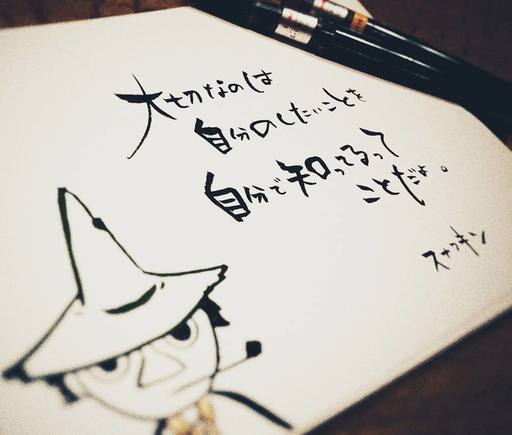 大切なのは
自分のしたいことを
自分で知ってるって
ことだよ。
スナフキン